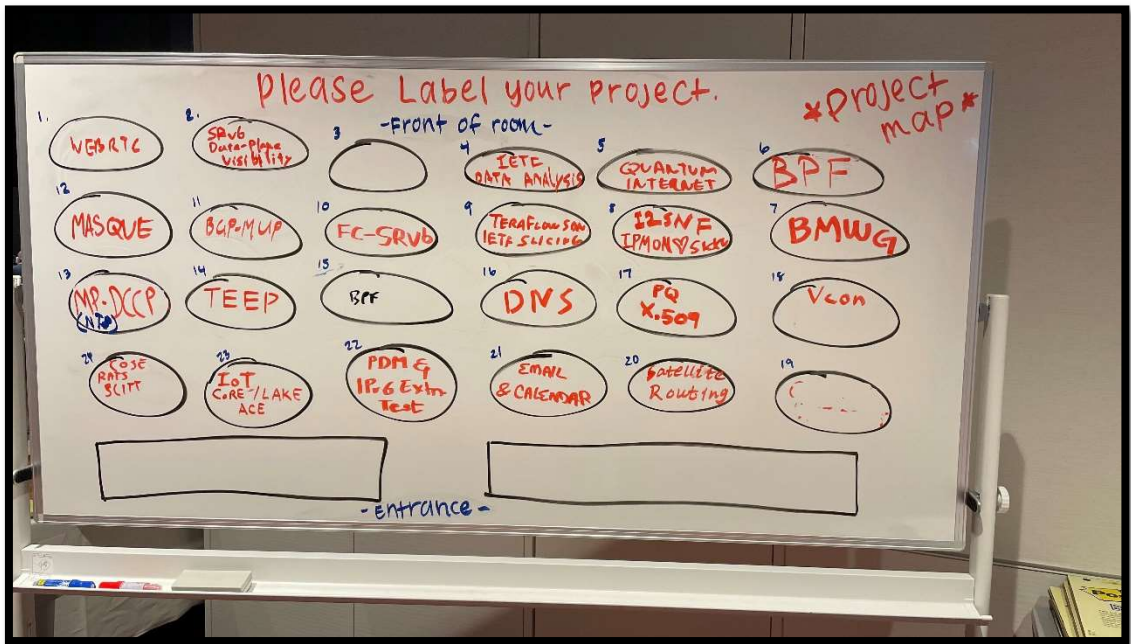 Please Label your project.
*project map*
-Front of room-
1.
WEBRTC
2.
SRv6
Data-Plane
Visibility
3
4
IETF
DATA ANALYSIS
5
QUANTUM
INTERNET
6
BPF
12
MASQUE
11
BGP-MUP
10
FC-SRV6
9
TERAFLOWSDN
IETF SLICING
8
I2SNF
IPMON
7
BMWG
13
MP-DCCP
14
TEEP
15
BPF
16
DNS
17
PQ
X.509
18
Vcon
24
COSE
RATS
SCITT
23
IoT
CORE/LAKE
ACE
22
PDM &
IPv6 Extn
Test
21
EMAIL
& CALENDAR
20
Satellite
Routing
19
-entrance-